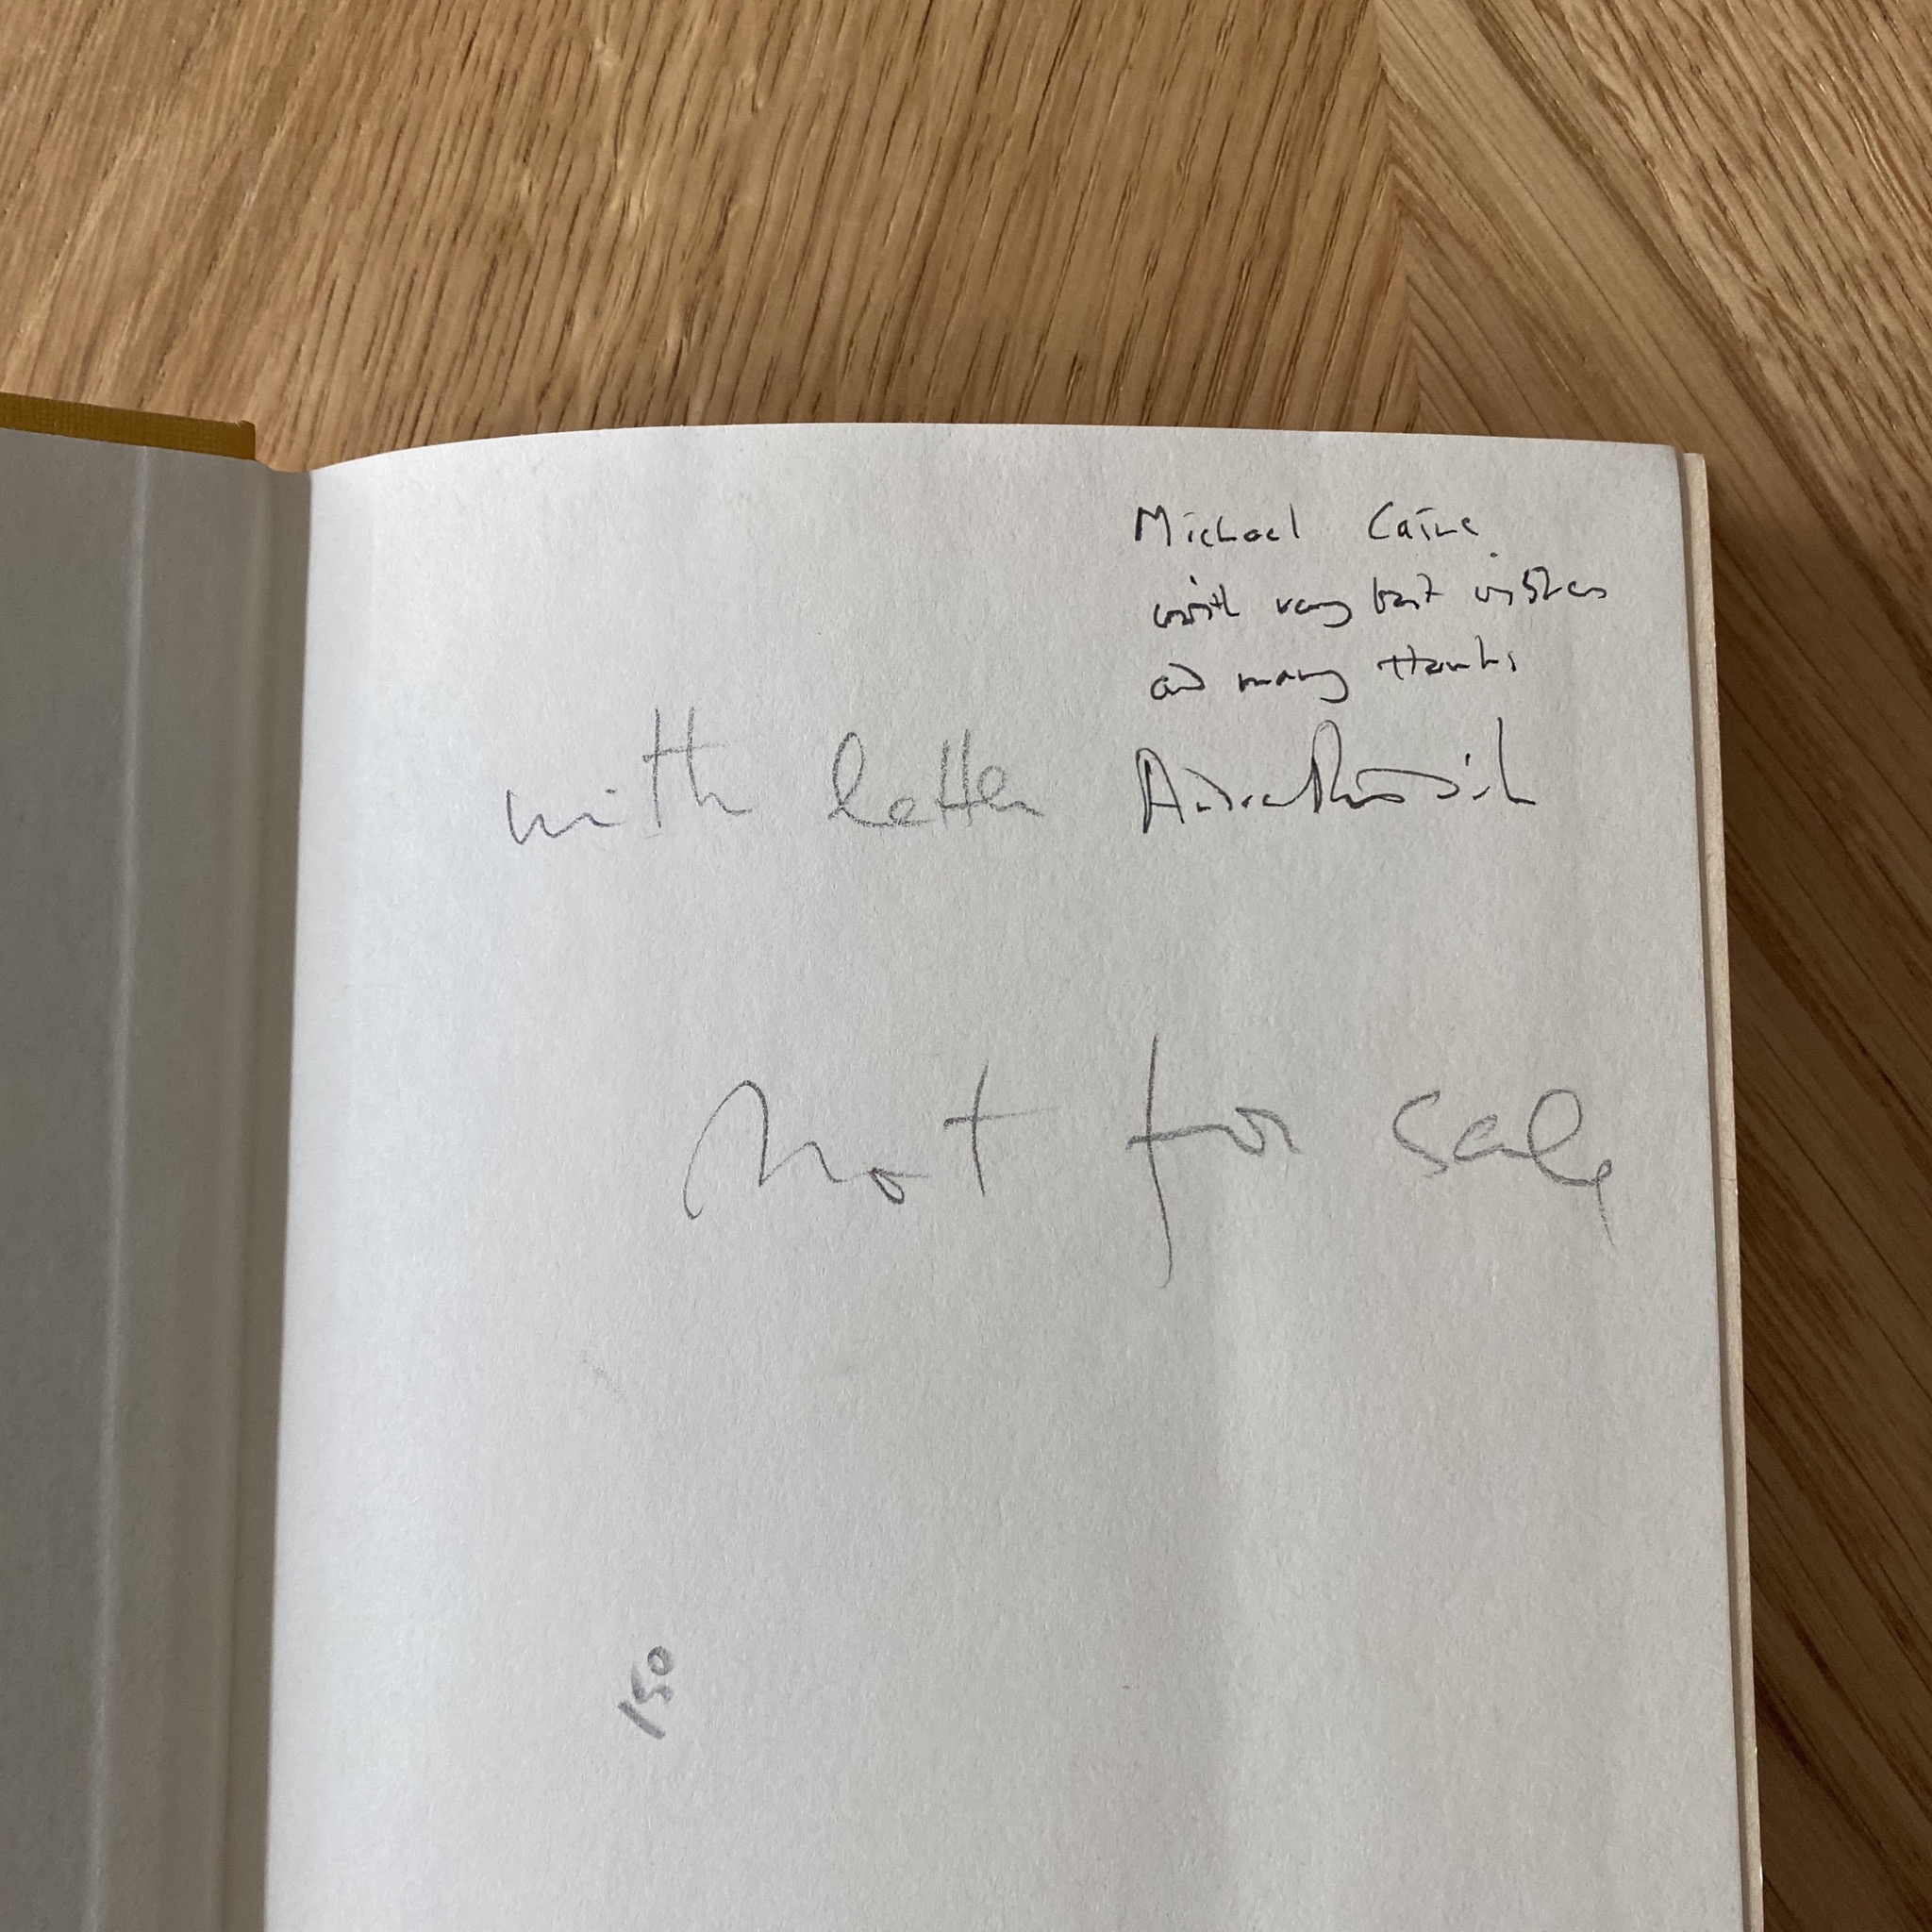 Michael Caine
with very best wishes
and many thanks
with letter
Not for sale
150